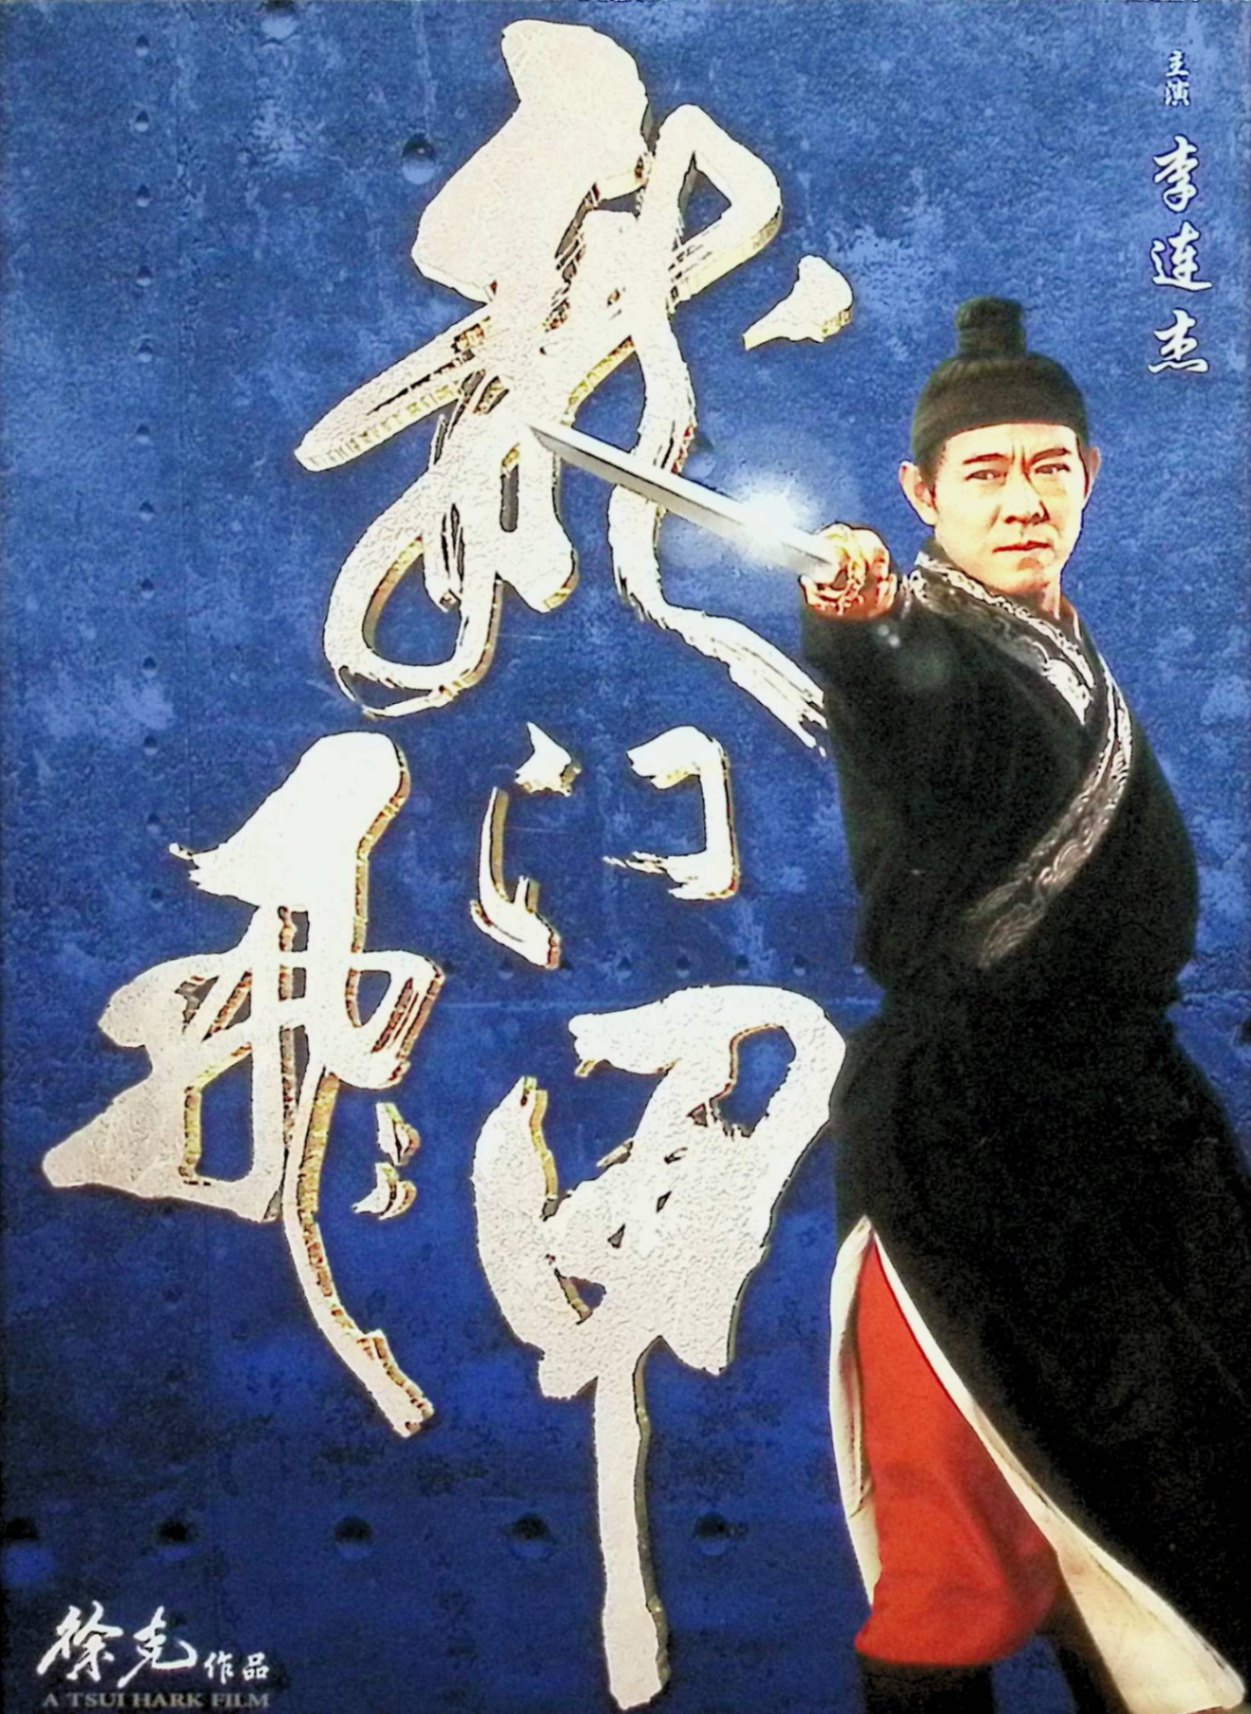 主演
李连杰
龙门
飞甲
徐克作品
A TSUI HARK FILM